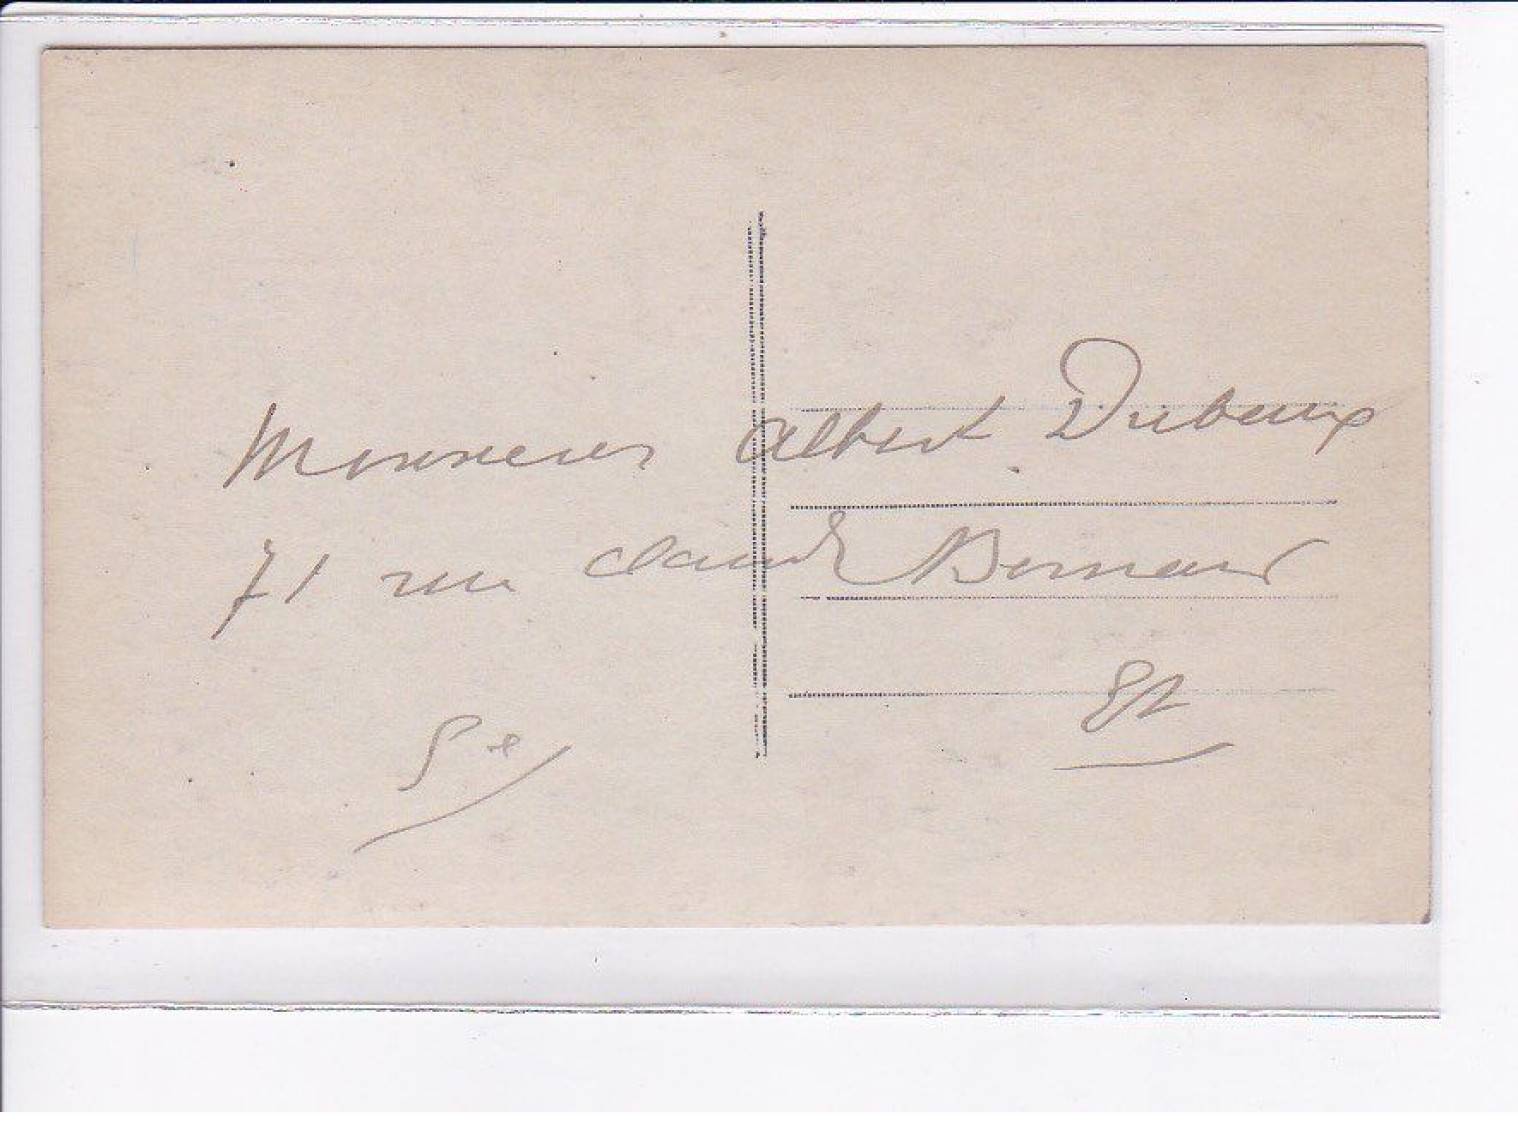 Monsieur Albert Dubeux
71 rue Claude Bernard
5e